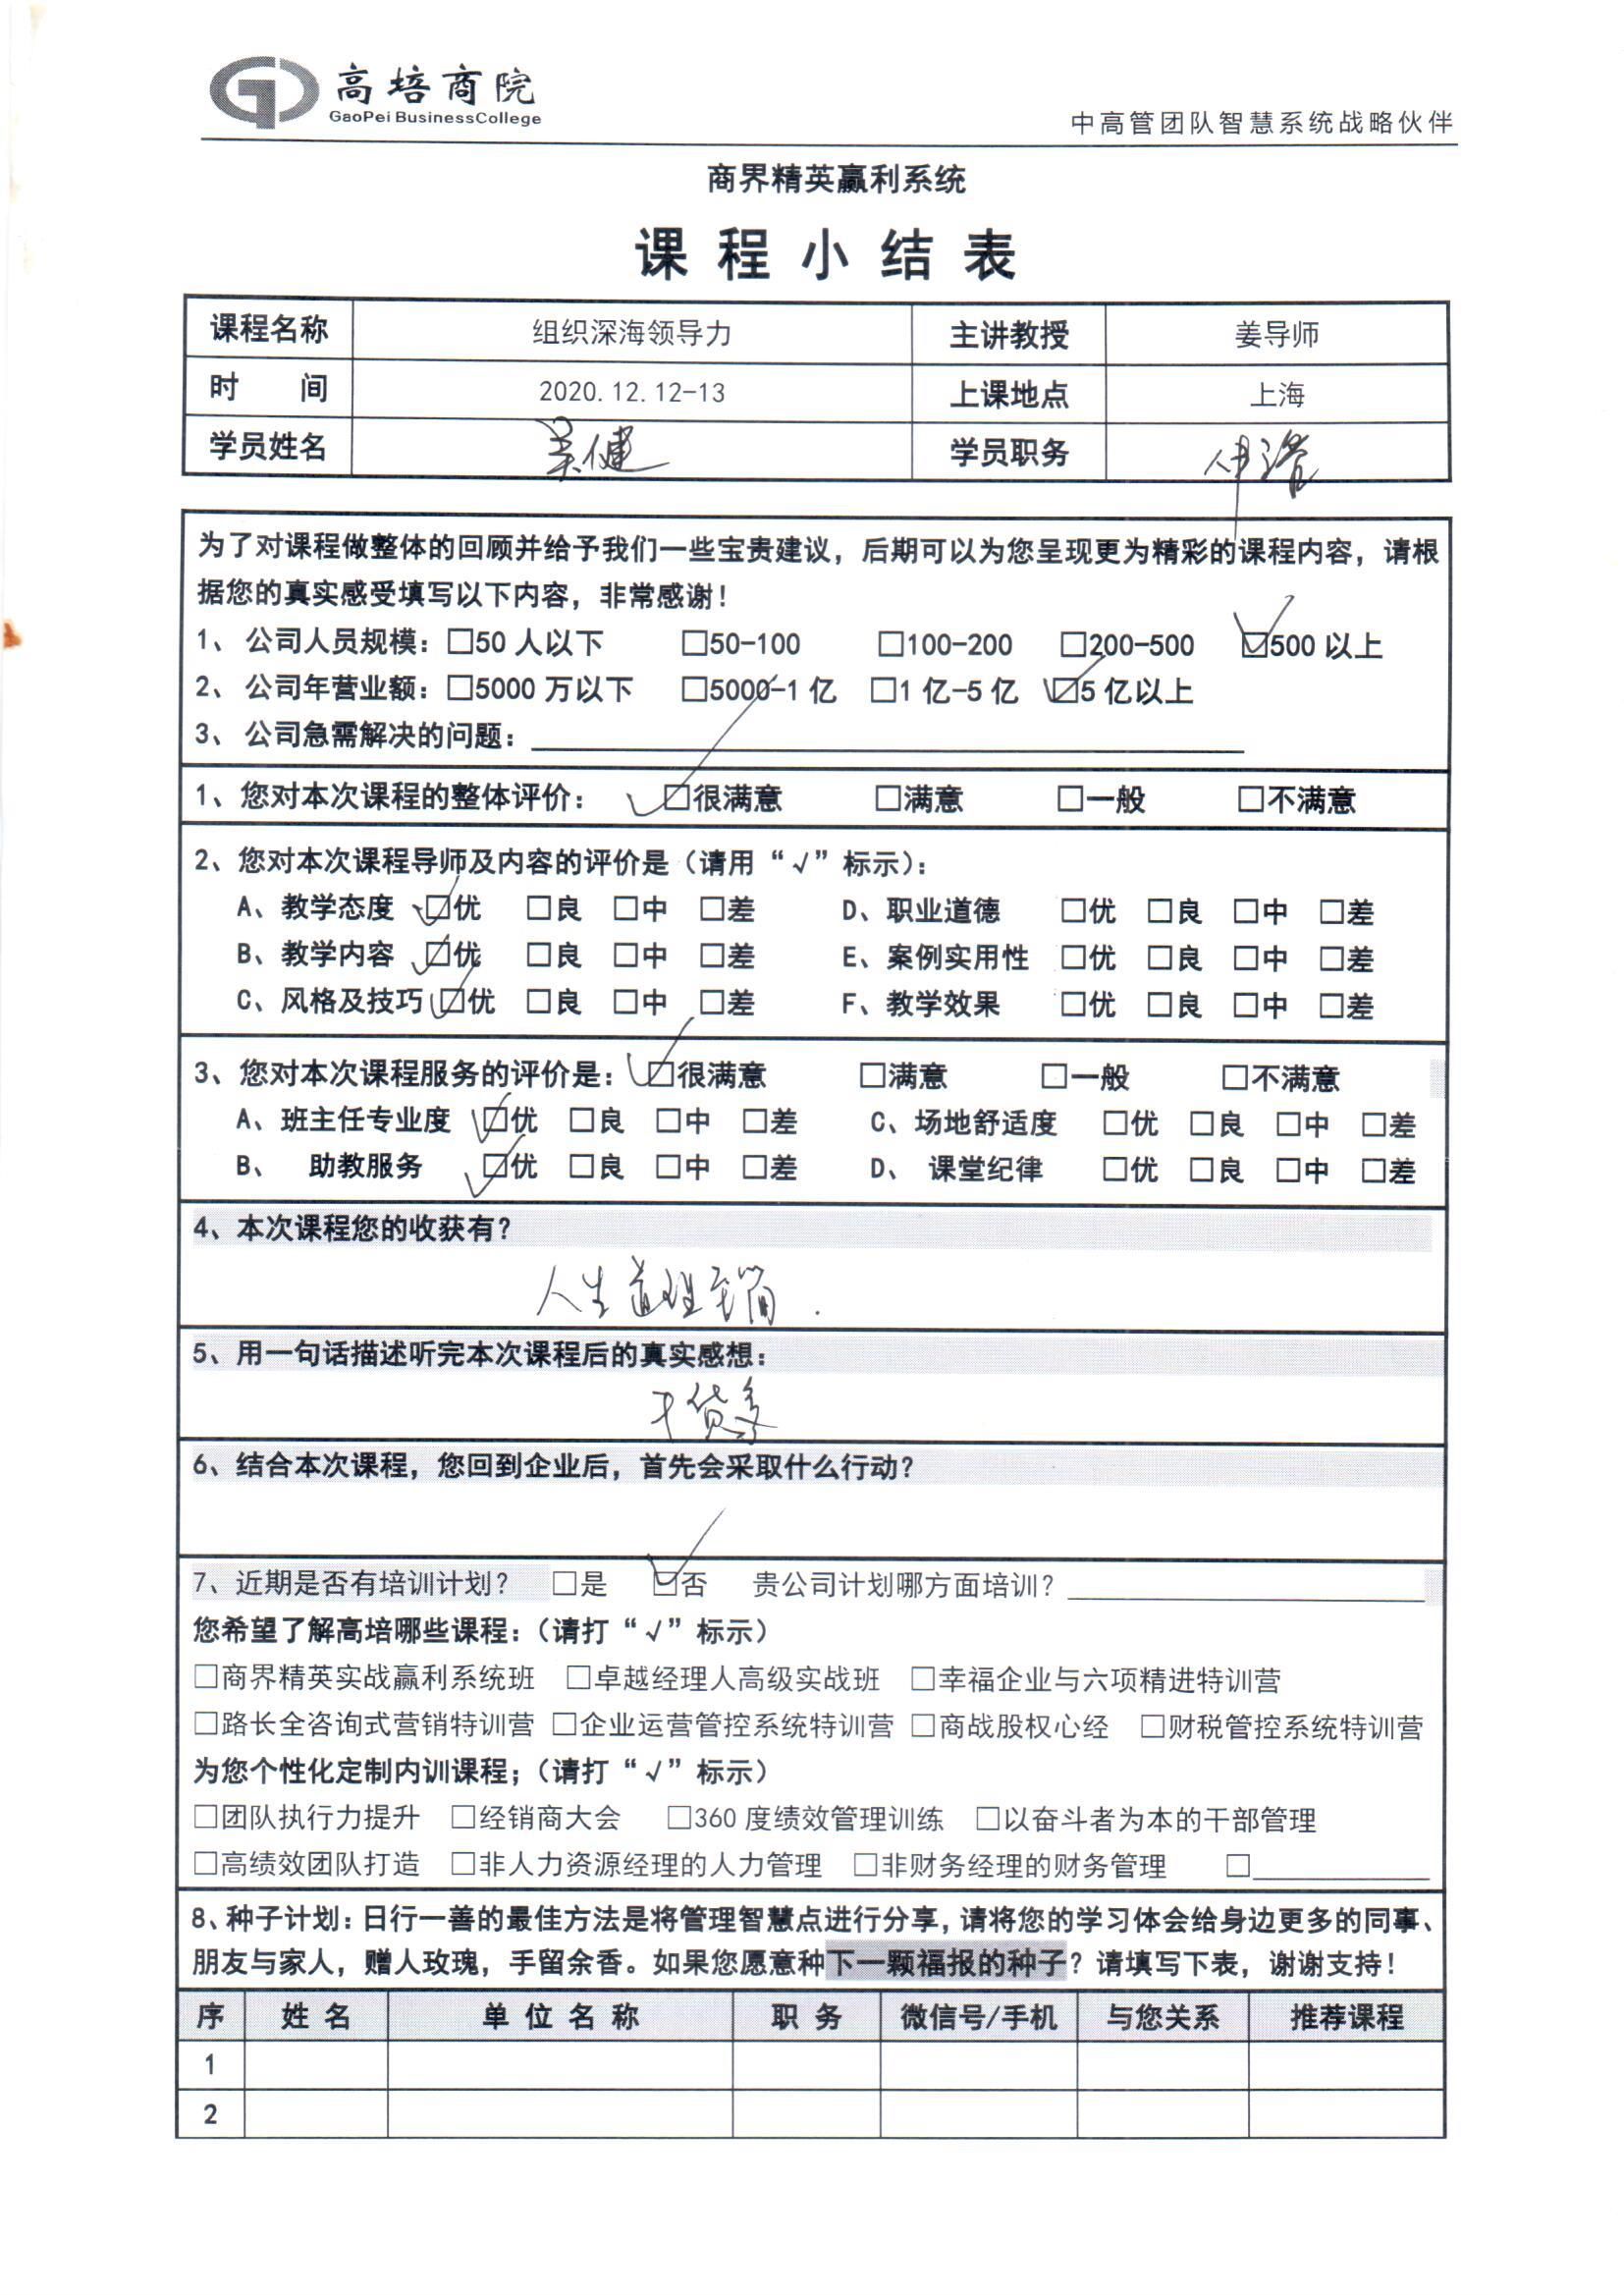 高培商院
GaoPei BusinessCollege
中高管团队智慧系统战略伙伴
商界精英赢利系统
课程小结表
课程名称 组织深海领导力 主讲教授 姜导师
时 间 2020.12.12-13 上课地点 上海
学员姓名 吴健 学员职务
为了对课程做整体的回顾并给予我们一些宝贵建议，后期可以为您呈现更为精彩的课程内容，请根
据您的真实感受填写以下内容，非常感谢！
1、 公司人员规模：□50 人以下 □50-100 □100-200 □200-500 ☑500 以上
2、 公司年营业额：□5000 万以下 □5000-1 亿 □1 亿-5 亿 ☑5 亿以上
3、 公司急需解决的问题：
1、您对本次课程的整体评价： ☑很满意 □满意 □一般 □不满意
2、您对本次课程导师及内容的评价是（请用“√”标示）：
A、教学态度 ☑优 □良 □中 □差 D、职业道德 □优 □良 □中 □差
B、教学内容 ☑优 □良 □中 □差 E、案例实用性 □优 □良 □中 □差
C、风格及技巧 ☑优 □良 □中 □差 F、教学效果 □优 □良 □中 □差
3、您对本次课程服务的评价是： ☑很满意 □满意 □一般 □不满意
A、班主任专业度 ☑优 □良 □中 □差 C、场地舒适度 □优 □良 □中 □差
B、 助教服务 ☑优 □良 □中 □差 D、 课堂纪律 □优 □良 □中 □差
4、本次课程您的收获有？
人生道理至简.
5、用一句话描述听完本次课程后的真实感想：
干货多
6、结合本次课程，您回到企业后，首先会采取什么行动？
7、近期是否有培训计划？ □是 ☑否 贵公司计划哪方面培训？
您希望了解高培哪些课程：（请打“√”标示）
□商界精英实战赢利系统班 □卓越经理人高级实战班 □幸福企业与六项精进特训营
□路长全咨询式营销特训营 □企业运营管控系统特训营 □商战股权心经 □财税管控系统特训营
为您个性化定制内训课程；（请打“√”标示）
□团队执行力提升 □经销商大会 □360 度绩效管理训练 □以奋斗者为本的干部管理
□高绩效团队打造 □非人力资源经理的人力管理 □非财务经理的财务管理 □
8、种子计划：日行一善的最佳方法是将管理智慧点进行分享，请将您的学习体会给身边更多的同事、
朋友与家人，赠人玫瑰，手留余香。如果您愿意种下一颗福报的种子？请填写下表，谢谢支持！
序 姓 名 单 位 名 称 职 务 微信号/手机 与您关系 推荐课程
1
2